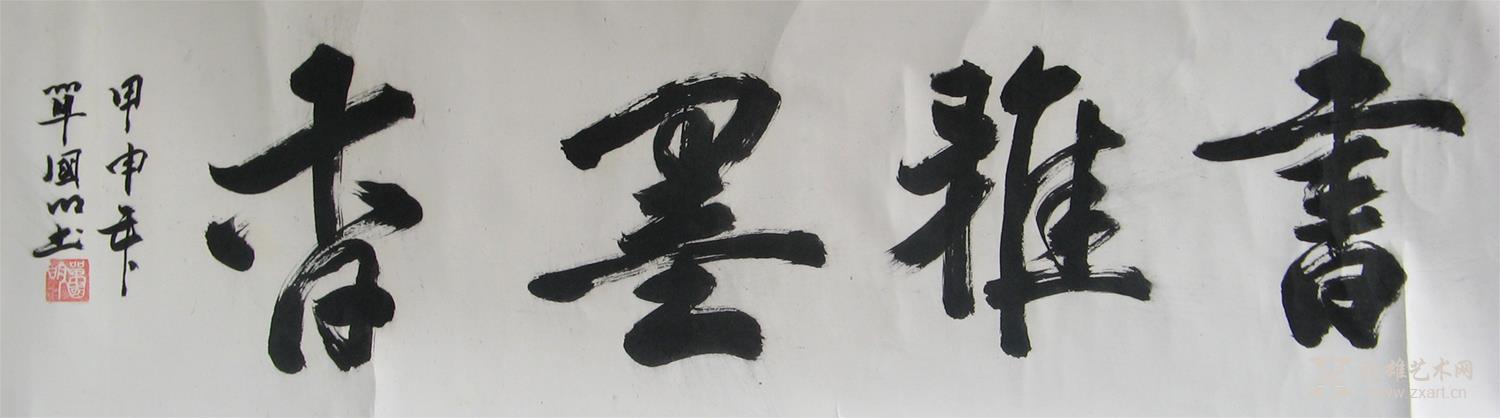 書雅墨香
甲申年
單國明書
艺术网
www.zxart.cn